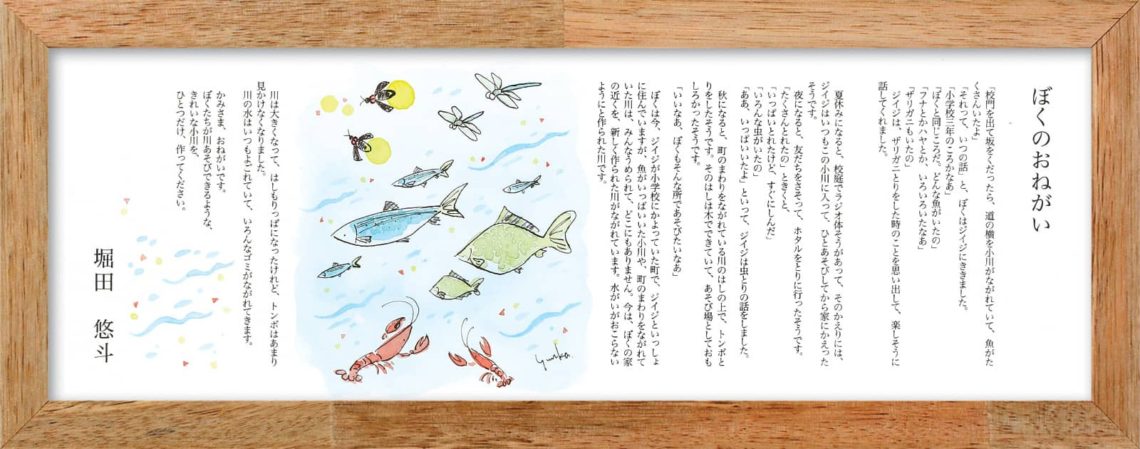 ぼくのおねがい
「校門を出て坂をくだったら、道の横を小川がながれていて、魚がた
くさんいたよ」
「それって、いつの話」と、ぼくはジイジにききました。
「小学校三年のころかなあ」
「ぼくと同じころだ。どんな魚がいたの」
「フナとかハヤとか、いろいろいたなあ」
「ザリガニもいたの」
ジイジは、ザリガニとりをした時のことを思い出して、楽しそうに
話してくれました。
夏休みになると、校庭でラジオ体そうがあって、そのかえりには、
ジイジはいつもこの小川に入って、ひとあそびしてから家にかえった
そうです。
夜になると、友だちをさそって、ホタルをとりに行ったそうです。
「たくさんとれたの」ときくと、
「いっぱいとれたけど、すぐにしんだ」
「いろんな虫がいたの」
「ああ、いっぱいいたよ」といって、ジイジは虫とりの話をしました。
秋になると、町のまわりをながれている川のはしの上で、トンボと
りをしたそうです。そのはしは木でできていて、あそび場としておも
しろかったそうです。
「いいなあ、ぼくもそんな所であそびたいなあ」
ぼくは今、ジイジが小学校にかよっていた町で、ジイジといっしょ
に住んでいますが、魚がいっぱいいた小川や、町のまわりをながれて
いた川は、みんなうめられて、どこにもありません。今は、ぼくの家
の近くを、新しく作られた川がながれています。水がいがおこらない
ようにと作られた川です。
川は大きくなって、はしもりっぱになったけれど、トンボはあまり
見かけなくなりました。
川の水はいつもよごれていて、いろんなゴミがながれてきます。
かみさま、おねがいです。
ぼくたちが川あそびできるような、
きれいな小川を、
ひとつだけ、作ってください。
堀田 悠斗